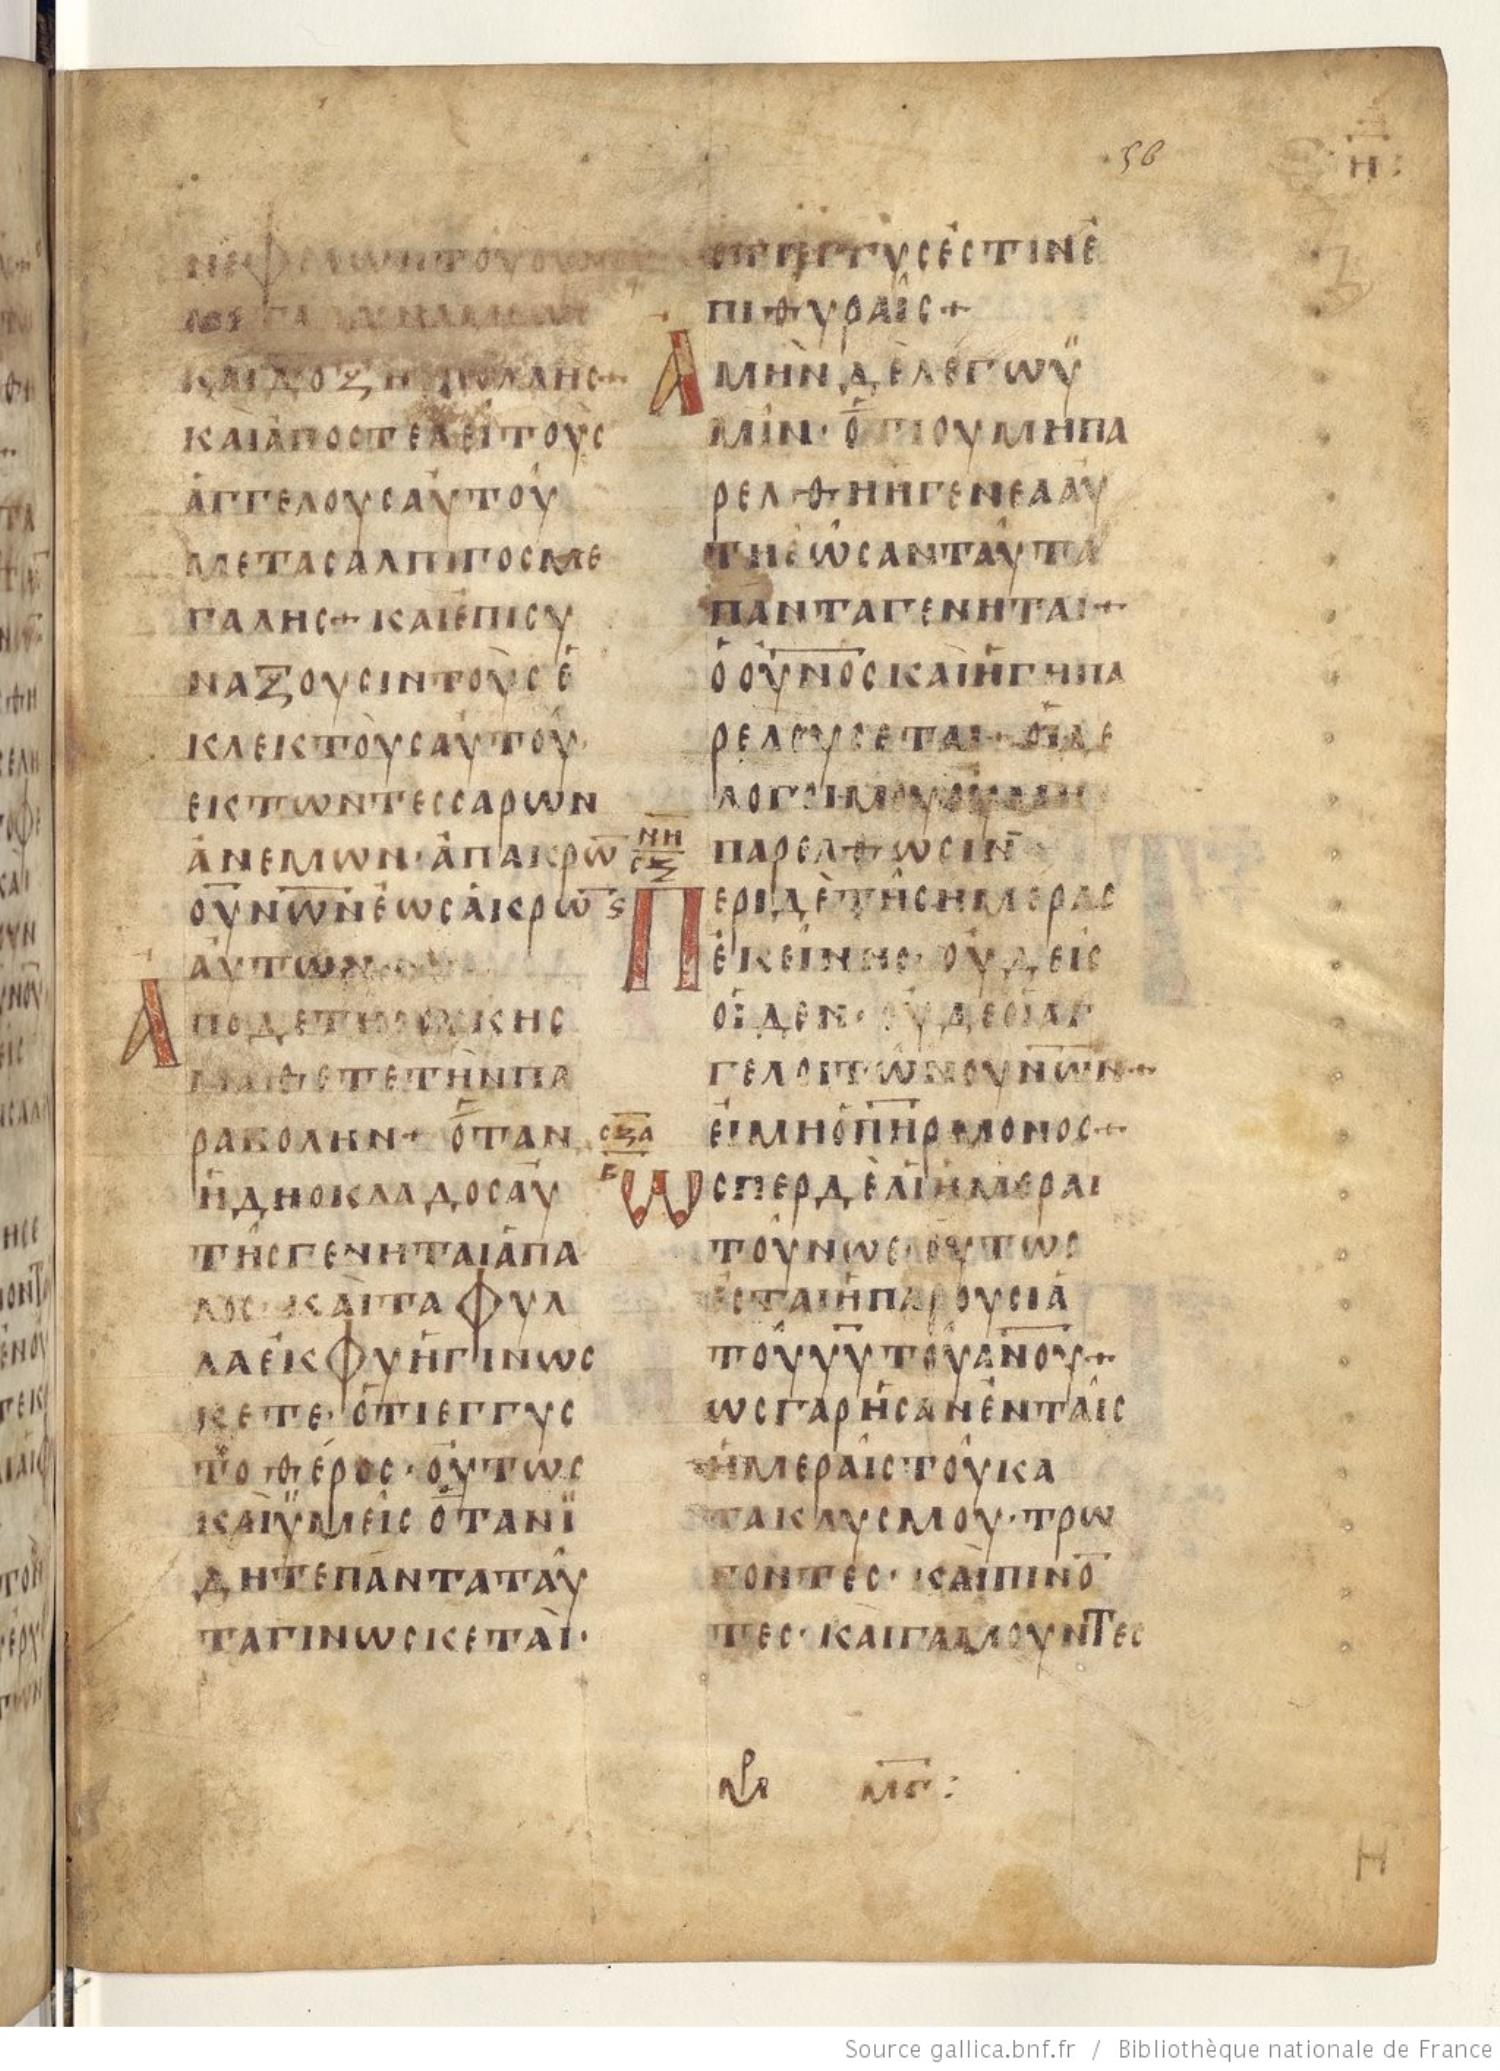 56
Η:
ΝΕΦΕΛΩΝΤΟΥΟΥΝΟΥ
ΜΕΤΑΔΥΝΑΜΕΩΣ
ΚΑΙΔΟΞΗΣΠΟΛΛΗς+
ΚΑῚἈΠΟςΤΕΛΕΙΤΟΥς
ἈΓΓΕΛΟΥςΑΥΤΟΥ
ΜΕΤΑςΑΛΠΙΓΓΟςΜΕ
ΓΑΛΗς+ΚΑΙΕΠΙςΥ
ΝΑΞΟΥςΙΝΤΟΥςΕ
ΚΛΕΚΤΟΥςΑΥΤΟΥ·
ΕΚΤΩΝΤΕςςΑΡΩΝ
ΑΝΕΜΩΝ·ΑΠΑΚΡΩ̅
ΟΥΝ̅Ω̅ΝΕΩςΑΚΡΩ̅
ΑΥΤΩΝ
ΑΠΟΔΕΤΗςςΥΚΗς
ΜΑΘΕΤΕΤΗΝΠΑ
ΡΑΒΟΛΗΝ+ΟΤΑΝ
ΗΔΗΟΚΛΑΔΟςΑΥ
ΤΗςΓΕΝΗΤΑΙΑΠΑ
ΛΟς·ΚΑΙΤΑΦΥΛ
ΛΑΕΚΦΥΗΓΙΝΩς
ΚΕΤΕ·ΟΤΙΕΓΓΥς
ΤΟΘΕΡΟς·ΟΥΤΩς
ΚΑΙΫΜΕΙςΟΤΑΝΪ
ΔΗΤΕΠΑΝΤΑΤΑΥ
ΤΑΓΙΝΩςΚΕΤΑΙ·
ΟΤΙΕΓΓΥςΕςΤΙΝΕ
ΠΙΘΥΡΑΙς+
ΑΜΗΝΔΕΛΕΓΩΫ
ΜΙΝ·ΟΤΙΟΥΜΗΠΑ
ΡΕΛΘΗΗΓΕΝΕΑΑΥ
ΤΗΕΩςΑΝΤΑΥΤΑ
ΠΑΝΤΑΓΕΝΗΤΑΙ+
ΟΟΥ̅Ν̅Ο̅ςΚΑΙΗΓΗΠΑ
ΡΕΛΕΥςΕΤΑΙ·ΟΙΔΕ
ΛΟΓΟΙΜΟΥΟΥΜΗ
ΠΑΡΕΛΘΩςΙΝ
Ν̅Η̅
ςΞ
ς
ΠΕΡΙΔΕΤΗςΗΜΕΡΑς
ΕΚΕΙΝΗς·ΟΥΔΕΙς
ΟΙΔΕΝ·ΟΥΔΕΟΙΑΓ
ΓΕΛΟΙΤΩΝΟΥΝ̅Ω̅Ν+
ΕΙΜΗΟΠ̅Η̅Ρ̅ΜΟΝΟς+
ςΞΑ
Ε
ΩςΠΕΡΔΕΑΙΗΜΕΡΑΙ
ΤΟΥΝΩΕ·ΟΥΤΩς
ΕςΤΑΙΗΠΑΡΟΥςΙΑ
ΤΟΥΥ̅Υ̅ΤΟΥΑ̅Ν̅Ο̅Υ̅+
ΩςΓΑΡΗςΑΝΕΝΤΑΙς
ΗΜΕΡΑΙςΤΟΥΚΑ
ΤΑΚΛΥςΜΟΥ·ΤΡΩ
ΓΟΝΤΕς·ΚΑΙΠΙΝΟ̅
ΤΕς·ΚΑΙΓΑΜΟΥΝΤΕς
Μ̅Γ̅:
Η
Source gallica.bnf.fr / Bibliothèque nationale de France